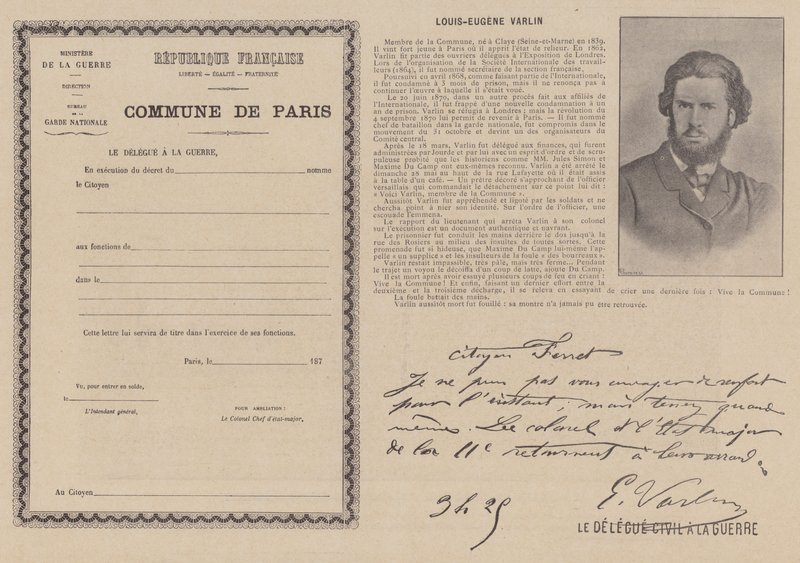 MINISTÈRE
DE LA GUERRE
DIRECTION
BUREAU
DE LA
GARDE NATIONALE
RÉPUBLIQUE FRANÇAISE
LIBERTÉ — ÉGALITÉ — FRATERNITÉ
COMMUNE DE PARIS
LE DÉLÉGUÉ À LA GUERRE,
En exécution du décret du nomme
le Citoyen
aux fonctions de
dans le
Cette lettre lui servira de titre dans l'exercice de ses fonctions.
Paris, le 187
Vu, pour entrer en solde,
le
L'Intendant général,
POUR AMPLIATION :
Le Colonel Chef d'état-major,
Au Citoyen
LOUIS-EUGÈNE VARLIN
Membre de la Commune, né à Claye (Seine-et-Marne) en 1839.
Il vint fort jeune à Paris où il apprit l'état de relieur. En 1862,
Varlin fit partie des ouvriers délégués à l'Exposition de Londres.
Lors de l'organisation de la Société Internationale des travail-
leurs (1864), il fut nommé secrétaire de la section française.
Poursuivi en avril 1868, comme faisant partie de l'Internationale,
il fut condamné à 3 mois de prison, mais il ne renonça pas à
continuer l'œuvre à laquelle il s'était voué.
Le 20 juin 1870, dans un autre procès fait aux affiliés de
l'Internationale, il fut frappé d'une nouvelle condamnation à un
an de prison. Varlin se réfugia à Londres ; mais la révolution du
4 septembre 1870 lui permit de revenir à Paris. — Il fut nommé
chef de bataillon dans la garde nationale, fut compromis dans le
mouvement du 31 octobre et devint un des organisateurs du
Comité central.
Après le 18 mars, Varlin fut délégué aux finances, qui furent
administrées par Jourde et par lui avec un esprit d'ordre et de scru-
puleuse probité que les historiens comme MM. Jules Simon et
Maxime Du Camp ont eux-mêmes reconnu. Varlin a été arrêté le
dimanche 28 mai au haut de la rue Lafayette où il était assis
à la table d'un café. — Un prêtre décoré s'approchant de l'officier
versaillais qui commandait le détachement sur ce point lui dit :
« Voici Varlin, membre de la Commune ».
Aussitôt Varlin fut appréhendé et ligoté par les soldats et ne
chercha point à nier son identité. Sur l'ordre de l'officier, une
escouade l'emmena.
Le rapport du lieutenant qui arrêta Varlin à son colonel
sur l'exécution est un document authentique et navrant.
Le prisonnier fut conduit les mains derrière le dos jusqu'à la
rue des Rosiers au milieu des insultes de toutes sortes. Cette
promenade fut si hideuse, que Maxime Du Camp lui-même l'ap-
pelle « un supplice » et les insulteurs de la foule « des bourreaux ».
Varlin restait impassible, très pâle, mais très ferme... Pendant
le trajet un voyou le décoiffa d'un coup de latte, ajoute Du Camp.
Il est mort après avoir essuyé plusieurs coups de feu en criant :
Vive la Commune ! Et enfin, faisant un dernier effort entre la
deuxième et la troisième décharge, il se releva en essayant de crier une dernière fois : Vive la Commune !
La foule battait des mains.
Varlin aussitôt mort fut fouillé : sa montre n'a jamais pu être retrouvée.
Citoyen Ferret
Je ne puis pas vous envoyer de renfort
pour l'instant ; mais tenez quand
mêmes. Le colonel et l'Etat major
de la 11e retournent à leur arrond.
3 h 25
E. Varlin
LE DÉLÉGUÉ CIVIL À LA GUERRE